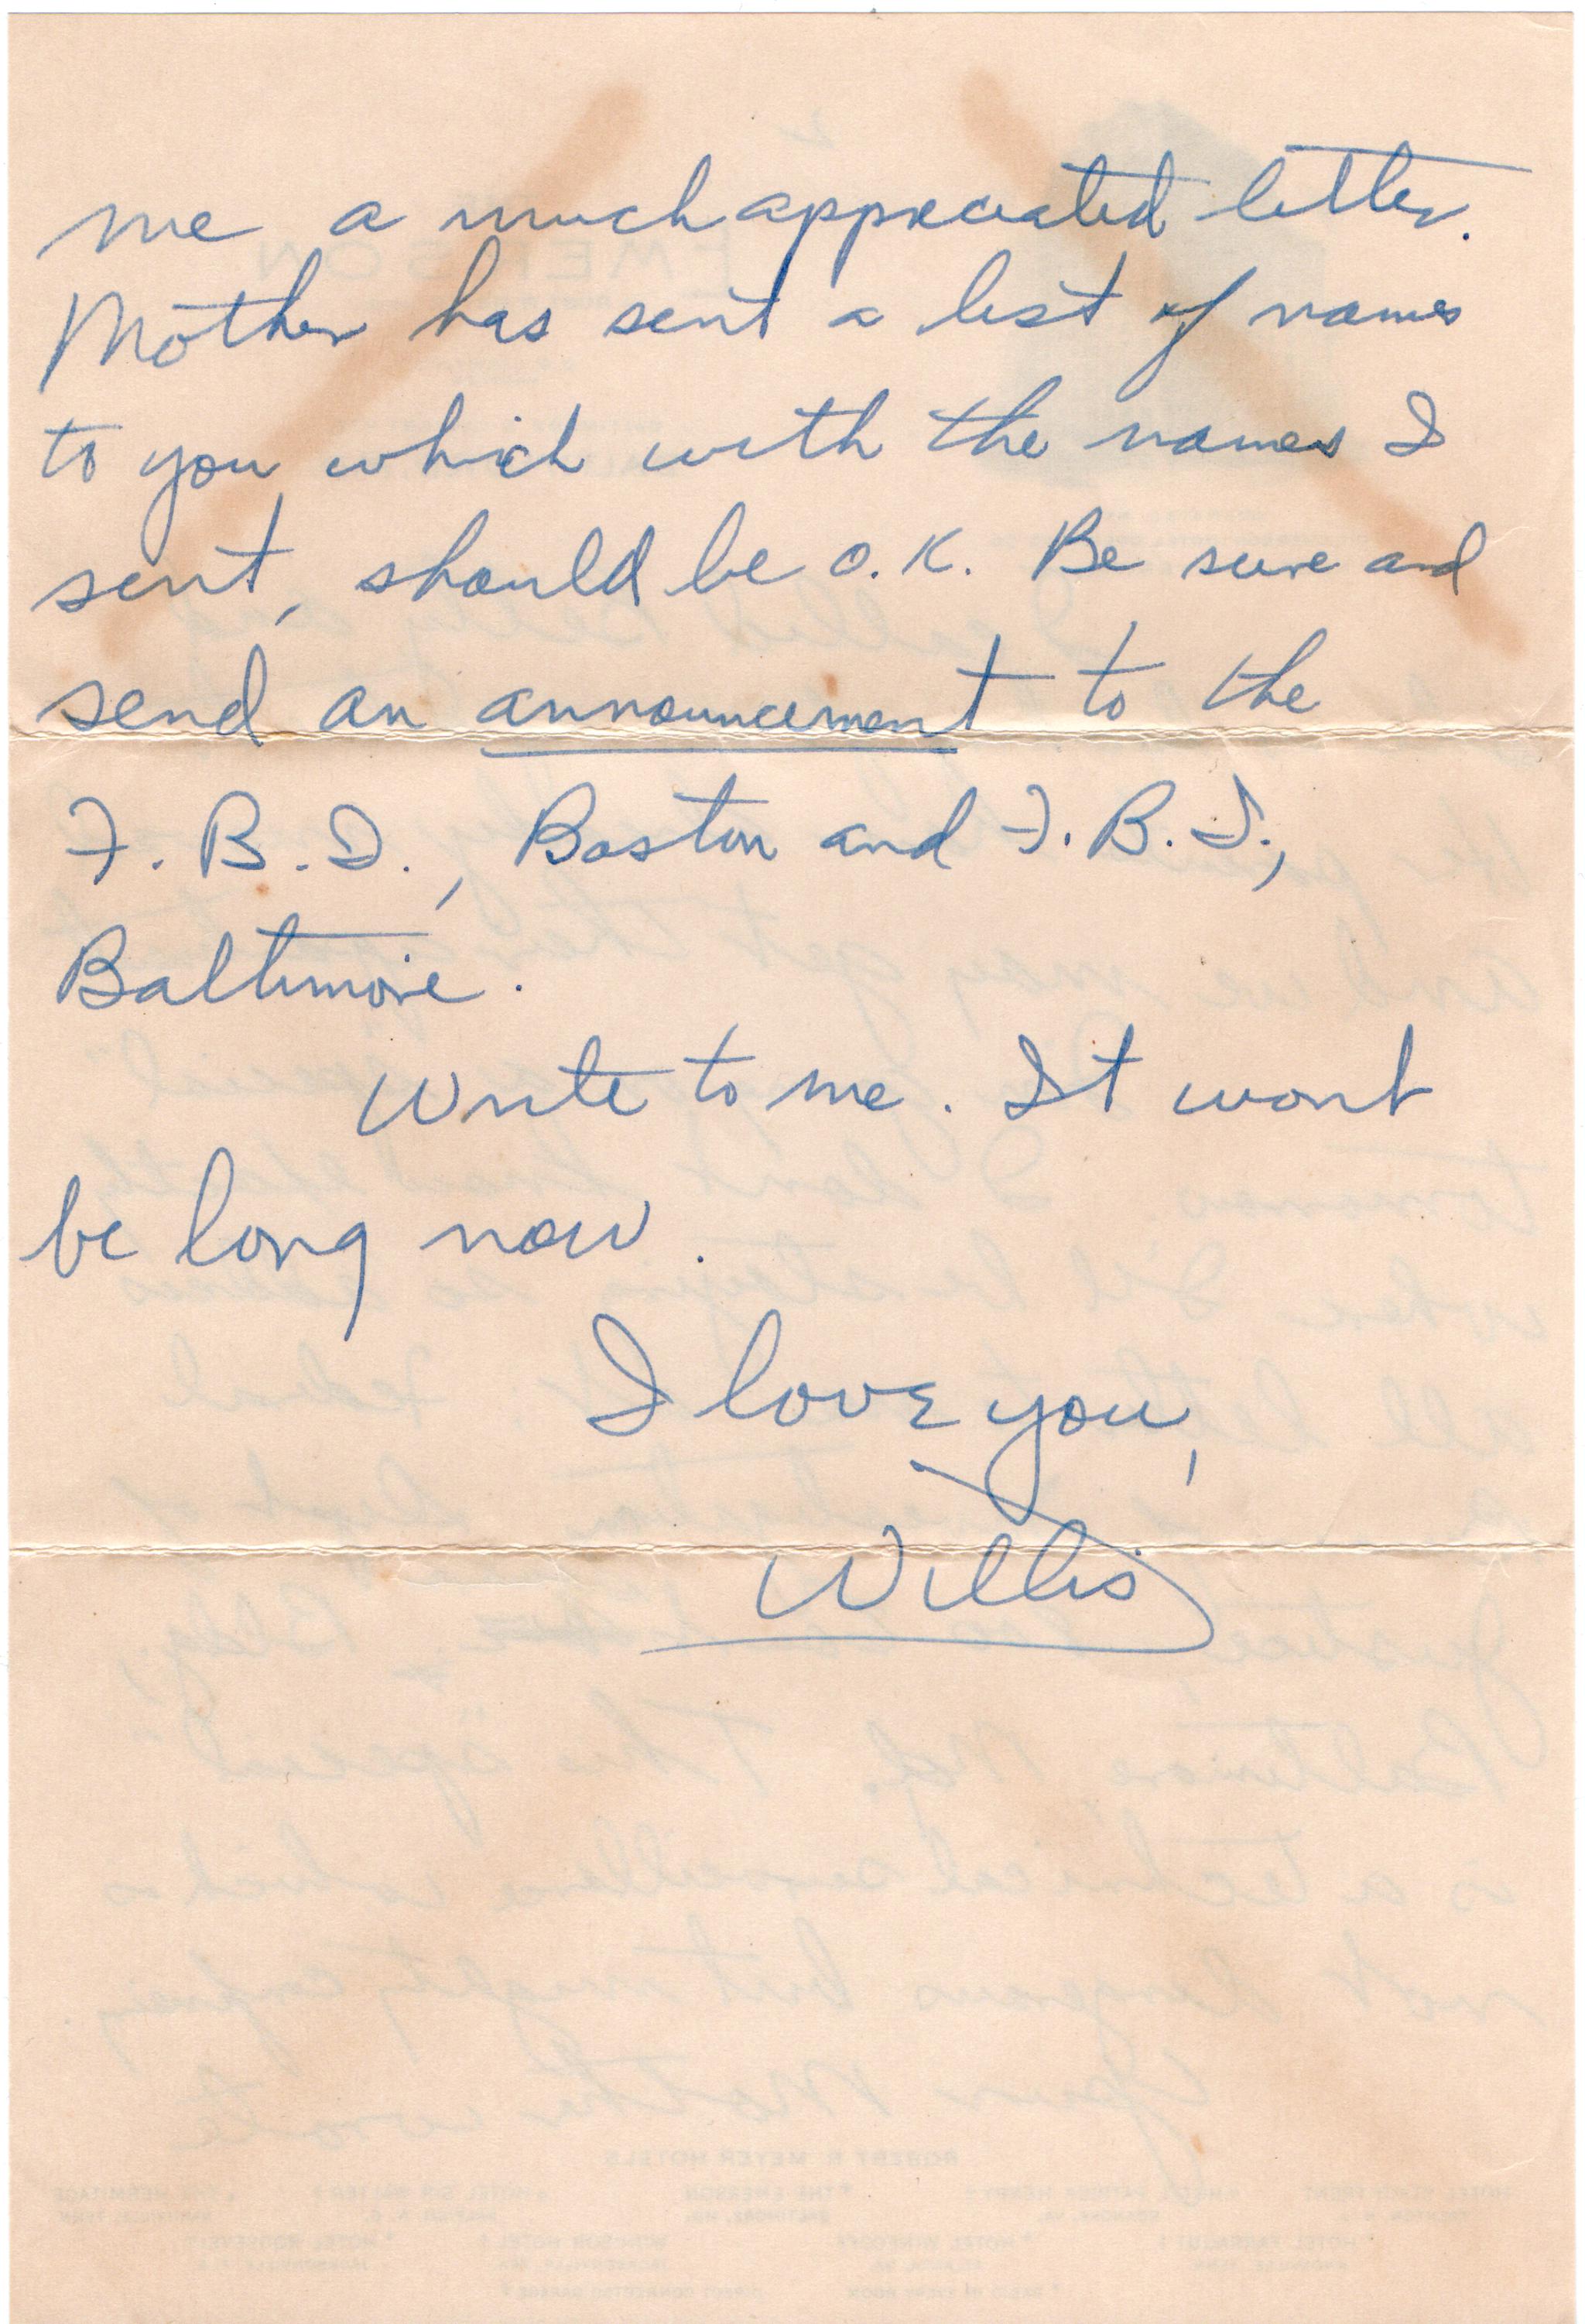 me a much appreciated letter.
Mother has sent a list of names
to you which with the names I
sent, should be O.K. Be sure and
send an announcement to the
F.B.I., Boston and F.B.I.,
Baltimore.
Write to me. It wont
be long now.
I love you,
Willis